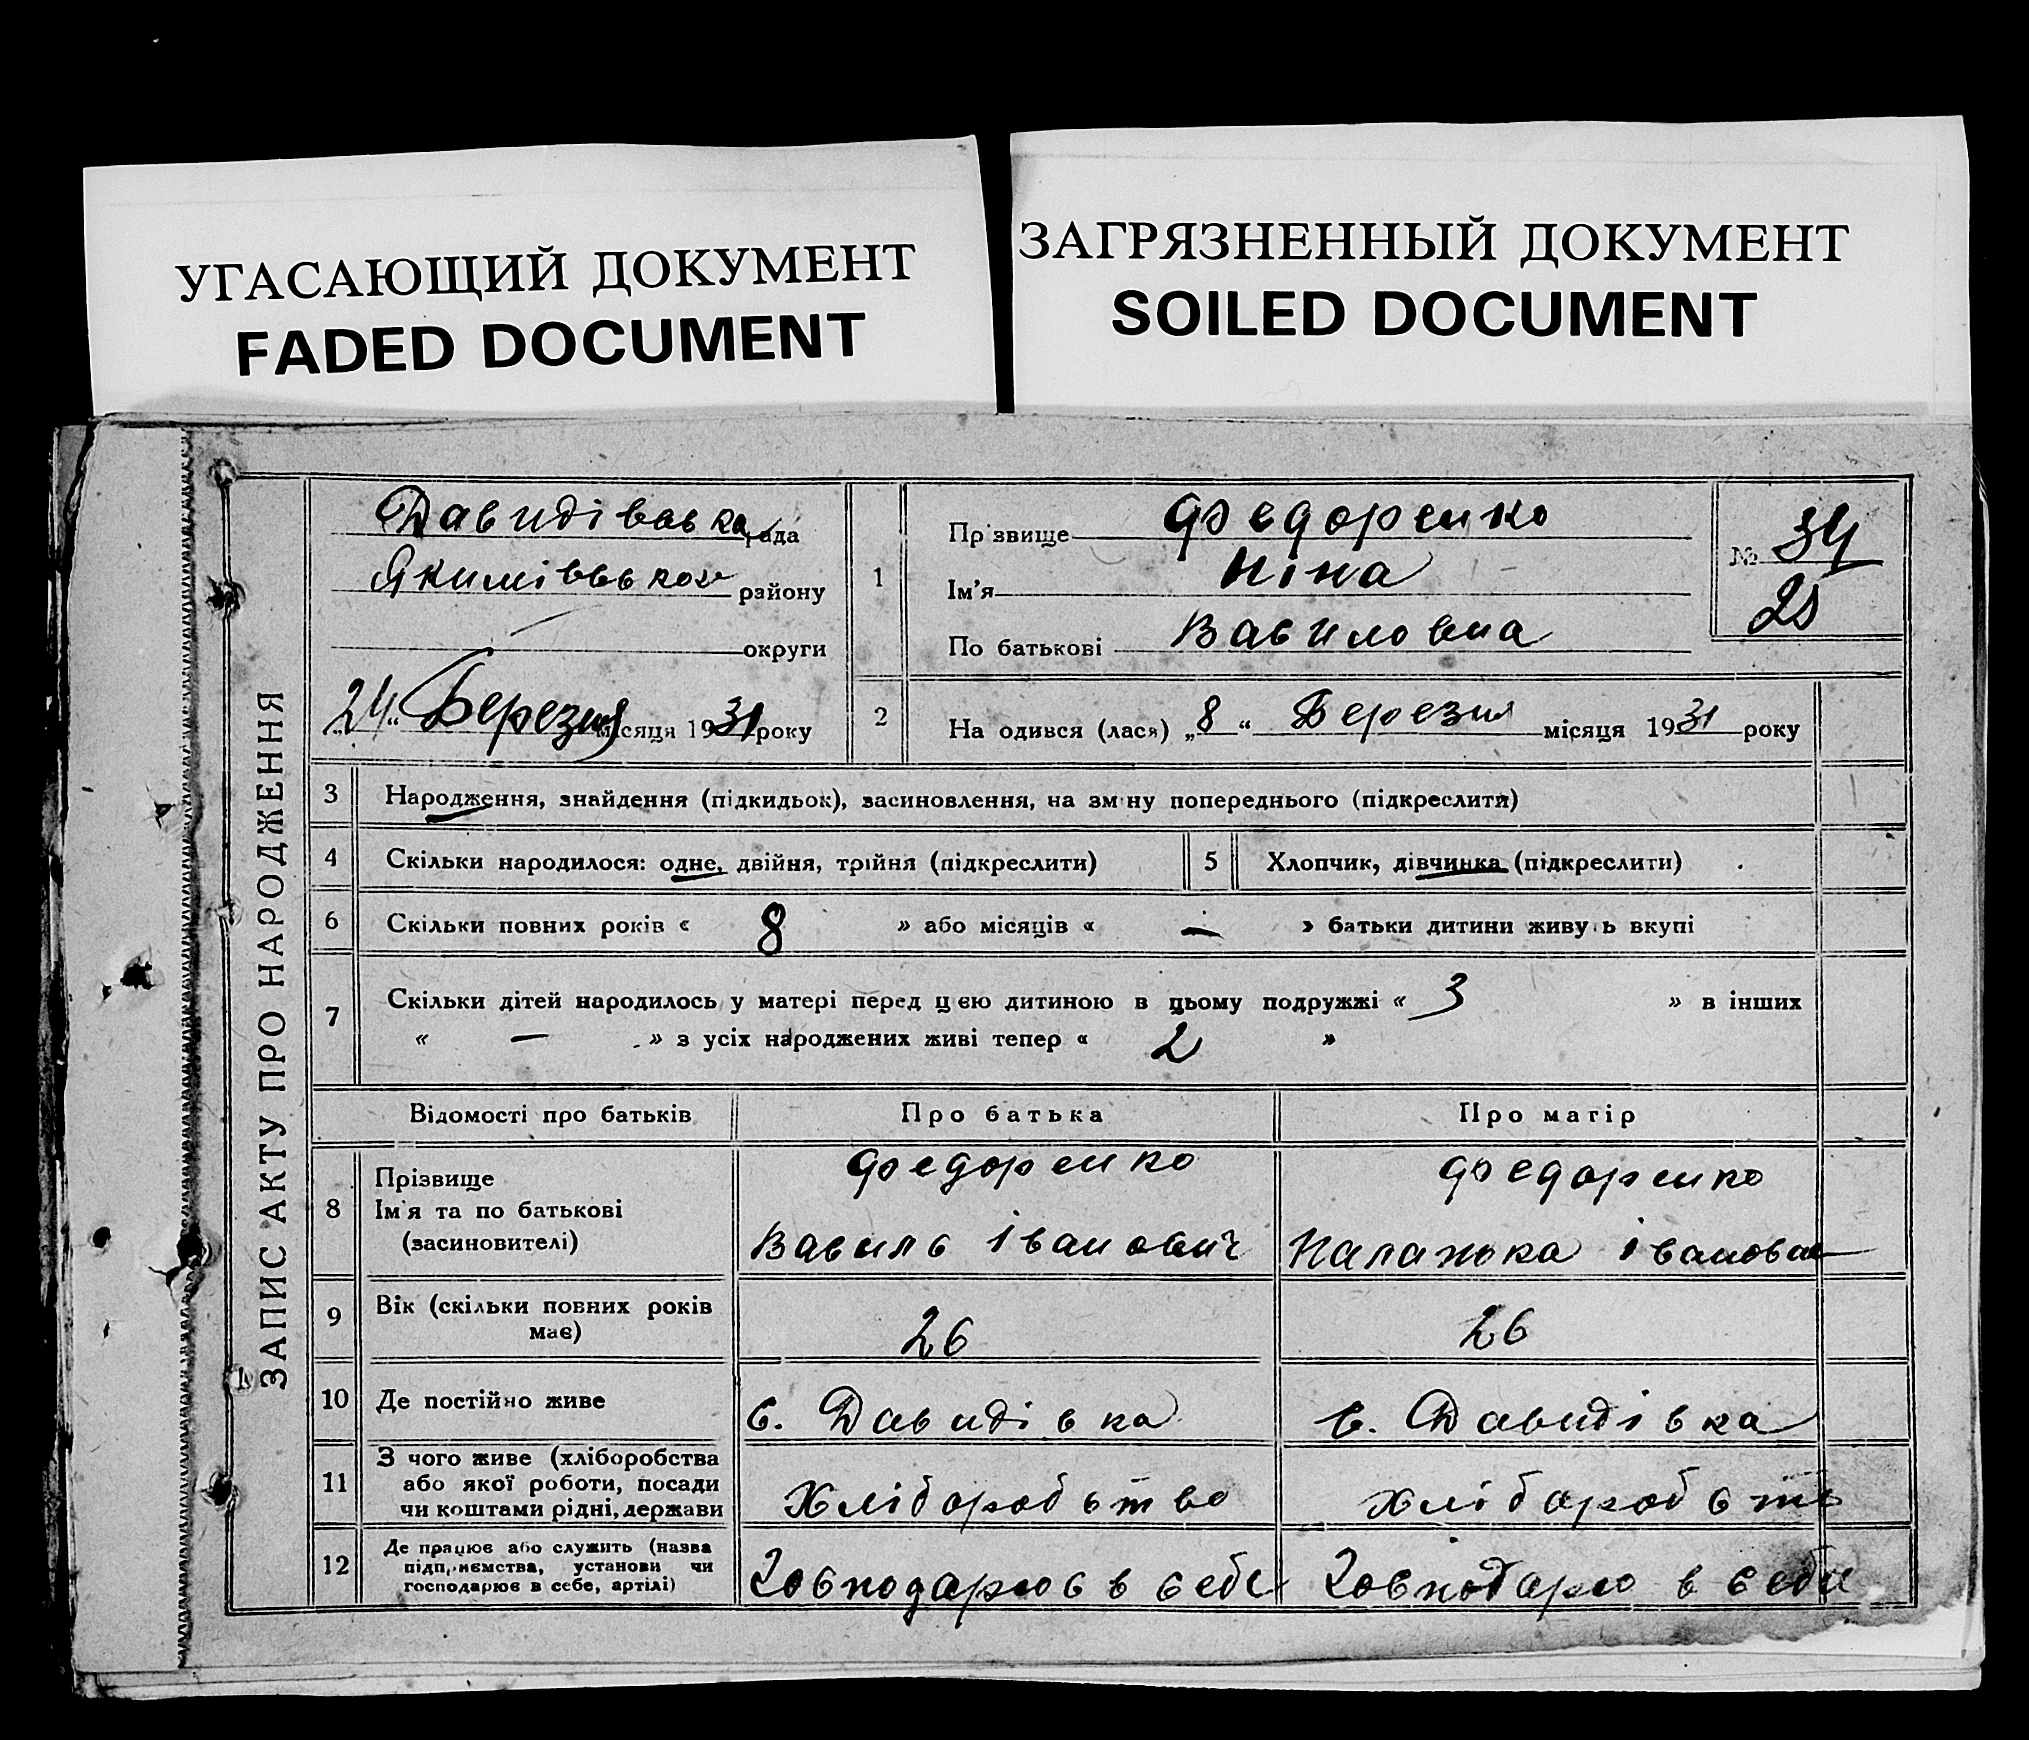 УГАСАЮЩИЙ ДОКУМЕНТ
FADED DOCUMENT
ЗАГРЯЗНЕННЫЙ ДОКУМЕНТ
SOILED DOCUMENT
ЗАПИС АКТУ ПРО НАРОДЖЕННЯ
Давидівська рада
Якимівськог району
округи
„24“ Березня місяця 1931 року
1
Прізвище Федоренко
Ім'я Ніна
По батькові Вавиловна
№ 34
25
2
На одився (лася) „8“ Березня місяця 1931 року
3 Народження, знайдення (підкидьок), засиновлення, на зміну попереднього (підкреслити)
4 Скільки народилося: одне, двійня, трійня (підкреслити)
5 Хлопчик, дівчинка (підкреслити)
6 Скільки повних років « 8 » або місяців « — » батьки дитини живуть вкупі
7 Скільки дітей народилось у матері перед цією дитиною в цьому подружжі « 3 » в інших
« — » з усіх народжених живі тепер « 2 »
Відомості про батьків Про батька Про матір
8 Прізвище
Ім'я та по батькові
(засиновителі)
Федоренко
Вавиль Іванович
Федоренко
Палажка Івановна
9 Вік (скільки повних років
має)
26
26
10 Де постійно живе
с. Давидівка
с. Давидівка
11 З чого живе (хліборобства
або якої роботи, посади
чи коштами рідні, держави
Хліборобство
хліборобств
12 Де працює або служить (назва
підприємства, установи чи
господарює в себе, артілі)
Господарює в себе
Господарю в себе